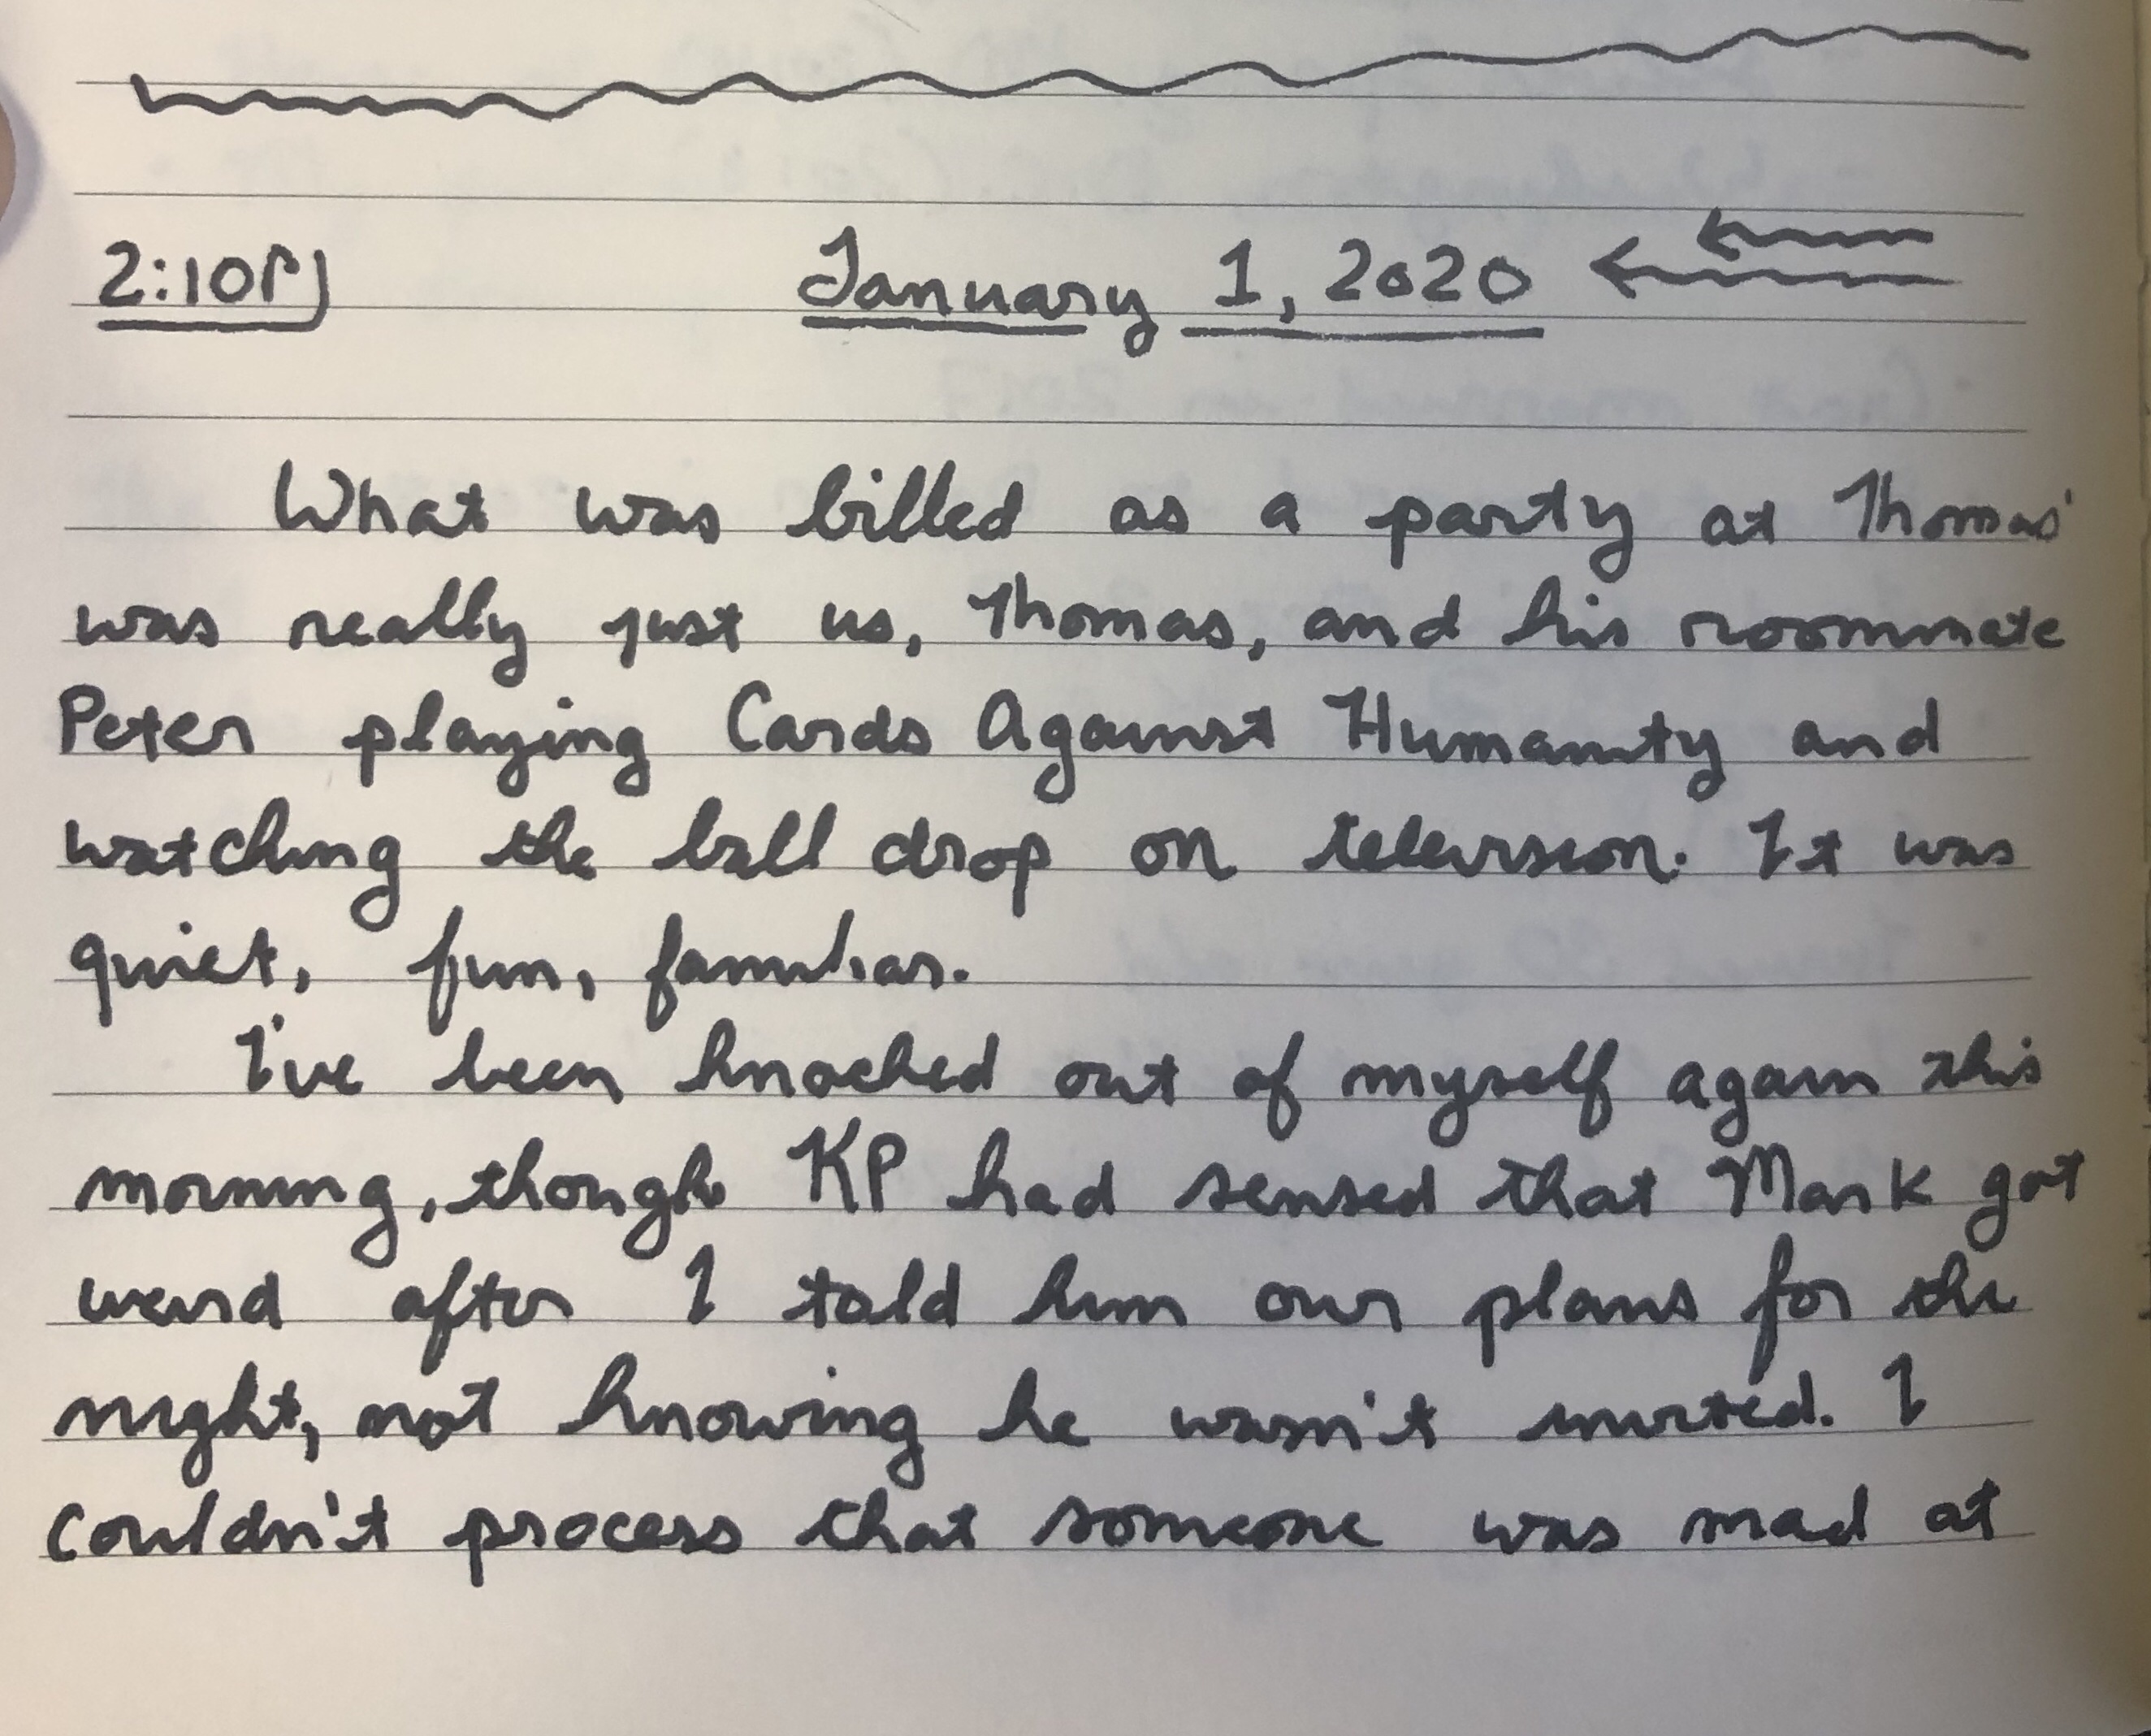 2:10P January 1, 2020
What was billed as a party at Thomas'
was really just us, Thomas, and his roommate
Peter playing Cards Against Humanity and
watching the ball drop on television. It was
quiet, fun, familiar.
I've been knocked out of myself again this
morning, though KP had sensed that Mark got
weird after I told him our plans for the
night, not knowing he wasn't invited. I
couldn't process that someone was mad at